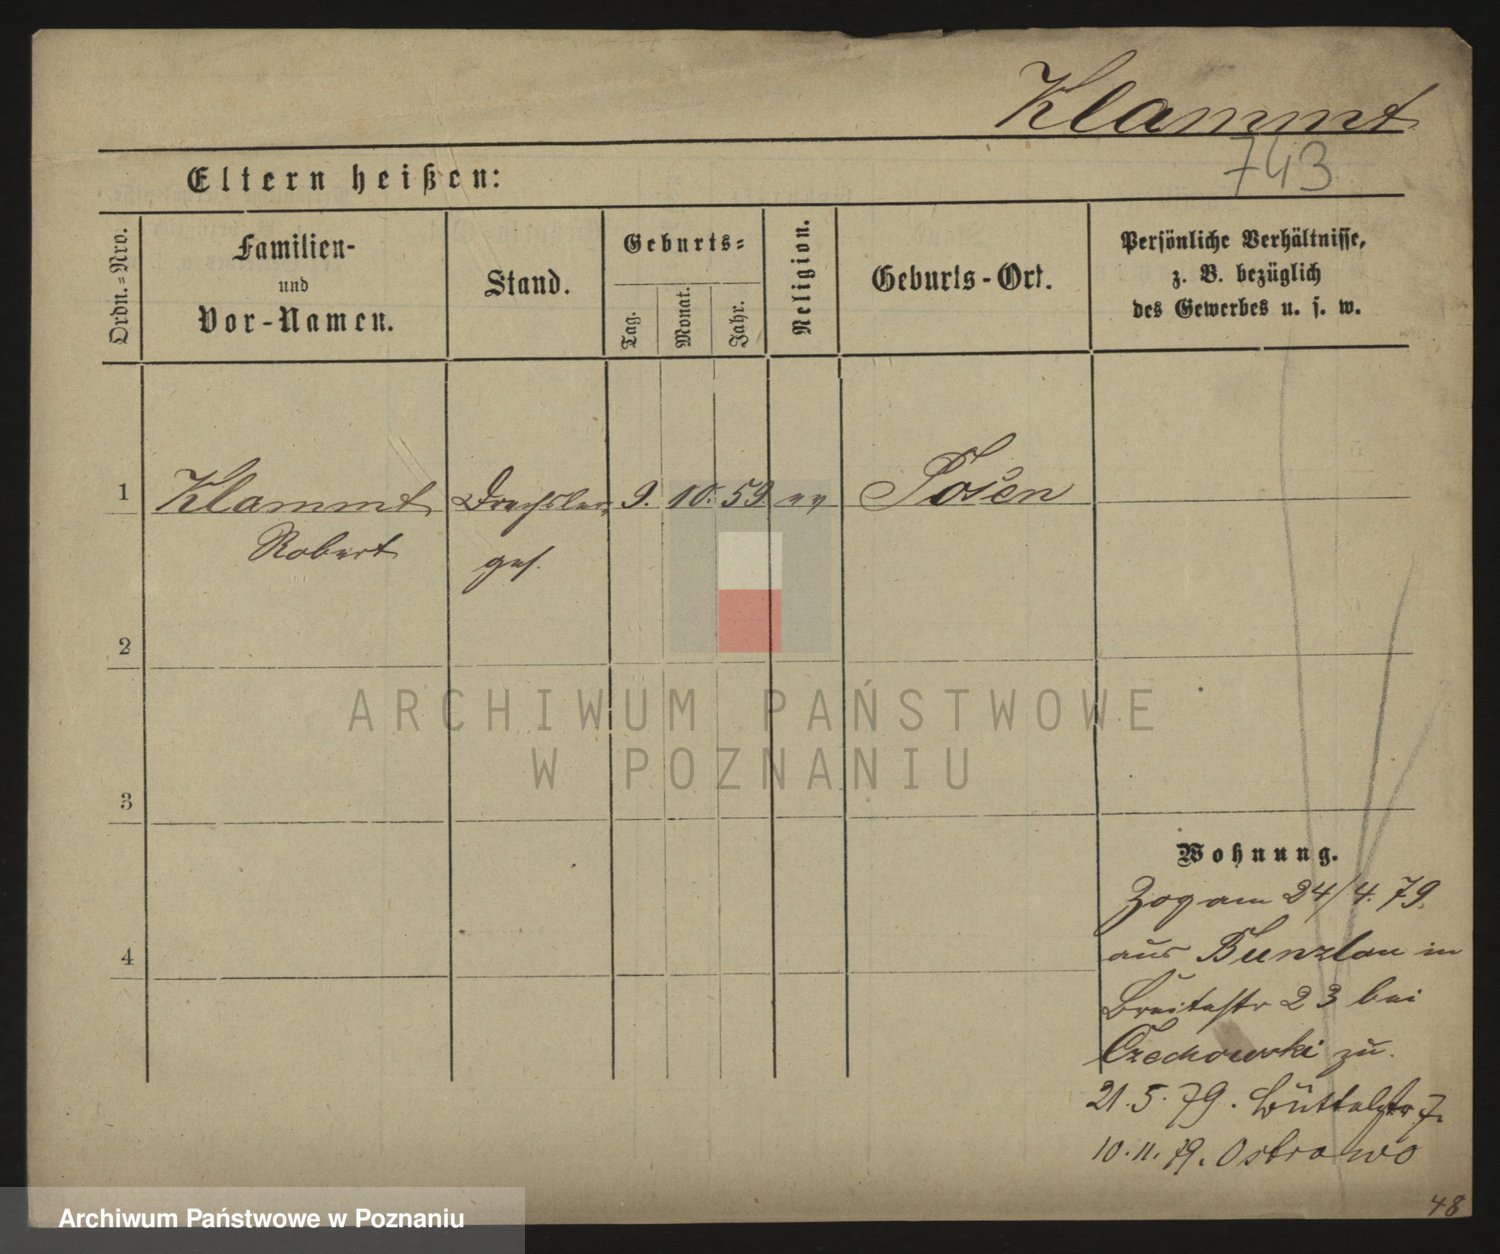 Klammt
743
Eltern heißen:
Ordn.=Nro.
Familien-
und
Vor-Namen.
Stand.
Geburts=
Tag.
Monat.
Jahr.
Religion.
Geburts-Ort.
Persönliche Verhältnisse,
z. B. bezüglich
des Gewerbes u. s. w.
1 Klammt Drechsler 9. 10. 59 Posen
Robert ges.
2
ARCHIWUM PAŃSTWOWE
W POZNANIU
3
Wohnung.
Zog am 24/4. 79.
aus Bunzlau in
4
Breitestr 23 bei
Czechowski zu.
21. 5. 79. Büttelstr 7.
10. 11. 79. Ostrowo
48
Archiwum Państwowe w Poznaniu